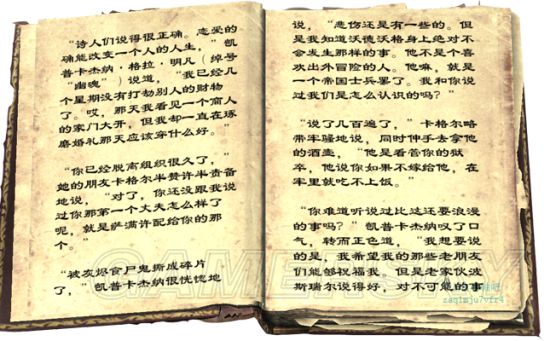 “诗人们说得很正确。恋爱的
确能改变一个人的人生，”凯
普卡杰纳·格拉·明凡（绰号
“幽魂”）说道，“我已经几
个星期没有打劫别人的财物
了。哎，那天我看见一个商人
的家门大开，但我却一直在琢
磨婚礼那天应该穿什么好。”
“你已经脱离组织很久了，”
她的朋友卡格尔半赞许半责备
地说，“对了，你还没跟我说
过你那第一个丈夫怎么样了
呢，就是萨满许配给你的那
个。”
“被灰烬食尸鬼撕成碎片
了，”凯普卡杰纳很恍惚地
说，“悲伤还是有一些的。但
是我知道沃德沃格身上绝对不
会发生那样的事。他不是个喜
欢出外冒险的人。他嘛，就是
一个帝国士兵罢了。我和你说
过我们是怎么认识的吗？”
“说了几百遍了，”卡格尔略
带牢骚地说，同时伸手去拿他
的酒壶，“他是看管你的狱
卒，他说你如果不嫁给他，在
牢里就吃不上饭。”
“你难道听说过比这还要浪漫
的事吗？”凯普卡杰纳叹了口
气，转而正色道，“我想要说
的是，我希望我的那些老朋友
们能够祝福我，但是老家伙波
斯瑞尔说得好，对不可能的事
GAMERSKY
zaq1mju7vfr4